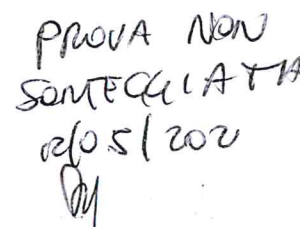 PROVA NON
SORTEGGIATA
/05/202